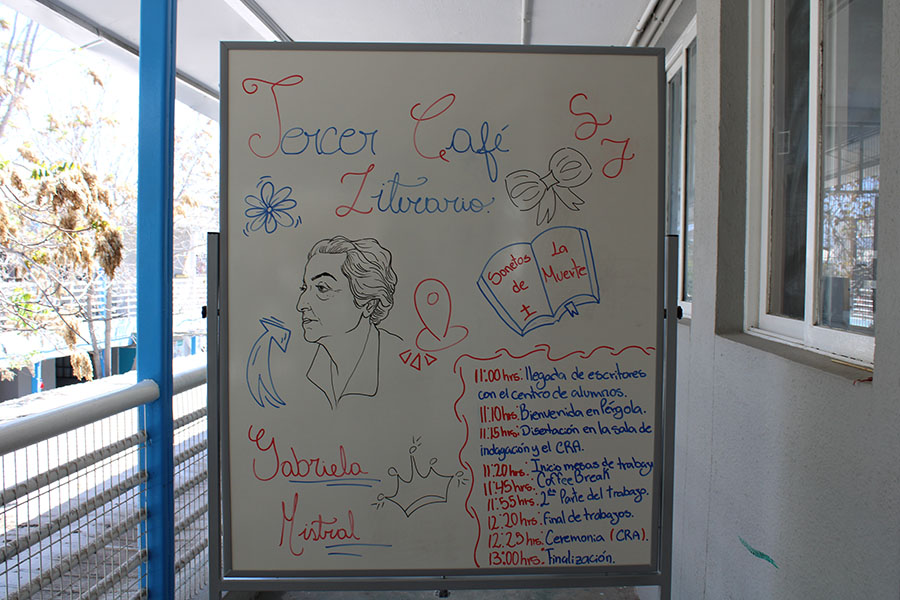 Tercer Café
Literario.
SJ
Sonetos
de
La
Muerte
Gabriela
Mistral
11:00 hrs: llegada de escritores
con el centro de alumnos.
11:10 hrs: Bienvenida en Pérgola.
11:15 hrs: Disertación en la sala de
indagación y el CRA.
11:20 hrs: Inicio mesas de trabajo
11:45 hrs: Coffee Break
11:55 hrs: 2da Parte del trabajo.
12:20 hrs: Final de trabajos.
12:25 hrs: Ceremonia (CRA).
13:00 hrs: Finalización.